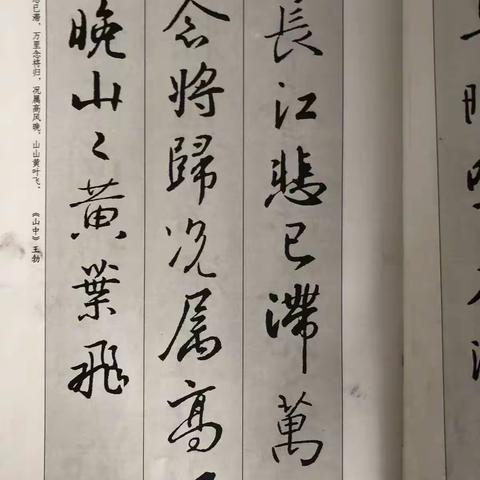 長江悲已滯萬
念將歸况属高
晚山々黄葉飛
已滞,万里念将归。况属高风晚,山山黄叶飞。
《山中》王勃